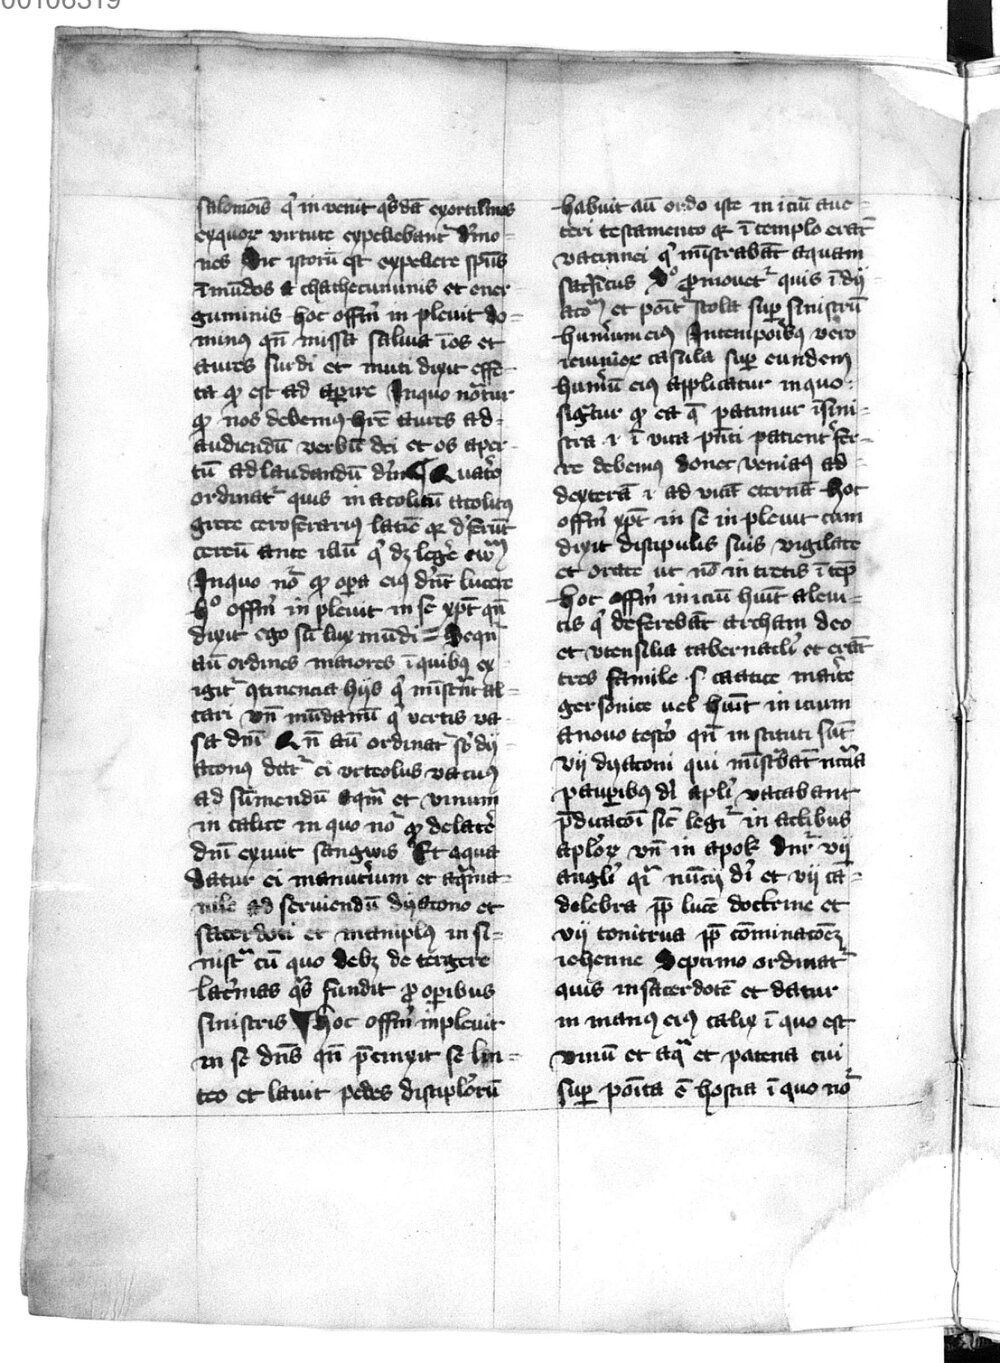 00106319
salomōis q̄ in venit q̄sdā exorcismos
ex quor virtute expellebant̄ demo-
nes Sic istorū est expellere sp̄us
īmūdos a chathecuminis et ener-
guminis hoc offm̄ in plevit do-
minus qn̄ missa saliva ī os et
aures surdi et muti dixit effe-
ta qd̓ est ad aperire In quo notatur
qd̓ nos debemus hr̄e aures ad
audiendū verbū dei et os aper-
tū ad laudandū dm̄ Quarto
ordinat᷑ quis in acolitū acolitus
grece ceroferarius latīe qr̄ deferūt
cereū ante illū q̄ dz legere ewᵐ
In quo nō qd̓ opera eius dn̄t lucere
hº offm̄ in plevit in se xp̄c qn̄
dixit ego sū lux mūdi Sequn̄t
aū ordines maiores ī quibus ex-
igit᷑ 9tinencia hijs q̄ mīstrāt al-
tari vn̄ mūdamī q̄ fertis va-
sa dm̄ Qn̄ aū ordinat᷑ sb̓dy-
aconus dat᷑ ei vrceolus vacuus
ad sumendū aqm̄ et vinum
in calice in quo nō qd̓ de latere
dn̄i exivit sangwis Et aqua
datur ei manutergium et aqma-
nile ad serviendū dyacono et
sacerdoti et manip̄lus in si-
nistra cū quo debꝫ de tergere
lacrimas q̄s fundit pro operibus
sinistris hoc offm̄ inplevit
in se dn̄s qn̄ precinxit se lin-
teo et lavit pedes discip̄lorū
habuit aū ordo iste iniciū a ve-
teri testamento qr̄ ī templo erāt
natinnei q̄ mīstrabāt aquam
sacrificiis vº promovet᷑ quis ī dy-
acoꝝ et poīt᷑ stola sup̄ sinistrū
humerum eius In temporibus vero
ieiuniorꝝ casula sup̄ eundem
humerū eius applicatur in quo
sig̓tur qd̓ ea q̄ patimur ī sini-
stra .i. ī vita pn̄ti patient᷑ fer-
re debemus donec veniamus ad
dexterā .i. ad vitā eternā Hoc
offm̄ xp̄c in se in plevit cum
dixit discipulis suis vigilate
et orate ut nō intretis ī temp̄
hoc offm̄ iniciū hūit a levi-
tis q̄ deferebāt archam dei
et vtensilia tabernacl̓i et erāt
tres famile .s. caatice mar̓te
gersonice vel hūit inicium
a novo testo qn̄ instituti sūt
vij dyaconi qui mīstrābāt nccia
pauperibus dū apl̓i vacabant
p̄dicacōi sic̄ legit᷑ in actibus
apl̓orꝝ vn̄ in apok̓ dn̄r vij
angl̓i q̄i nūcij di et vij cā-
delebra pp̄ lucē doctrine et
vij tonitrua pp̄ cōminacōeꝫ
iehenne Septimo ordinat᷑
quis in sacerdotē et datur
in manus eius calix ī quo est
vinū et aq̄ et patena cui
sup̄ poīta ē hostia ī quo nō